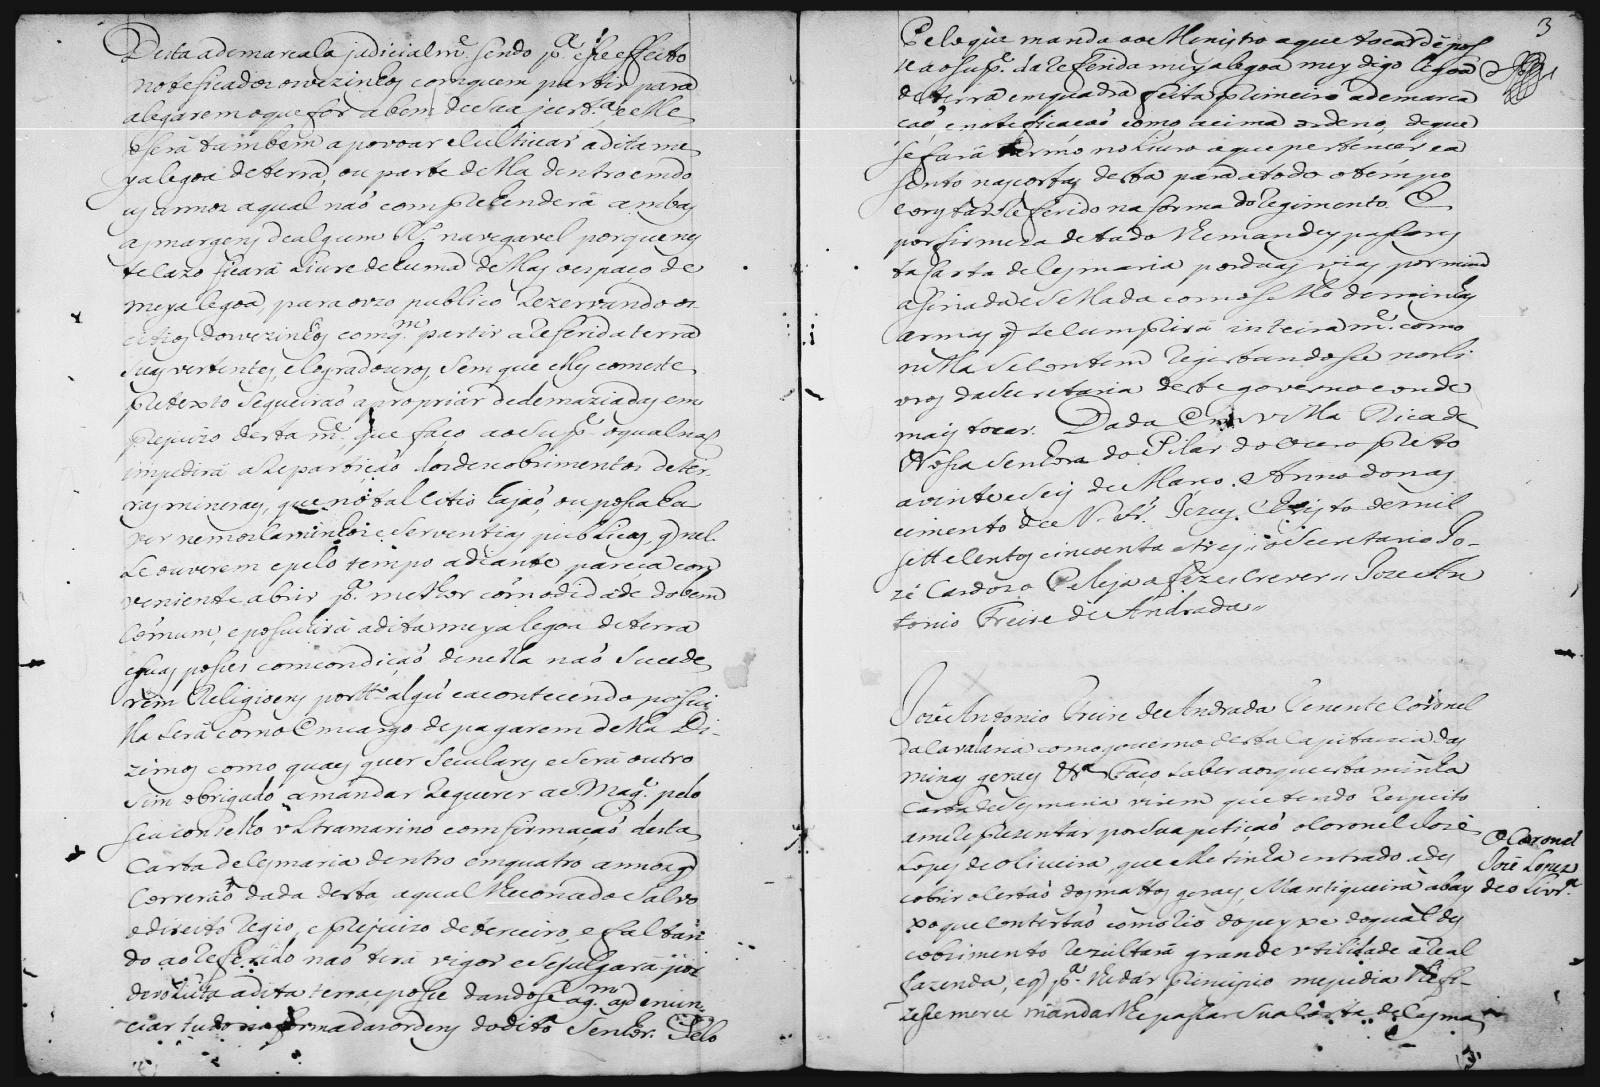 Desta ademarcala judicialm.e sendo p.a esse effeito
noteficados os vezinhos com quem partir para
alegarem o que for a bem de sua just.a e elle
o será tambem a povoar e cultivar a dita me
ya legoa de terra, ou parte della dentro em do
us annos a qual naõ comprehenderá ambas
as margens de algum Rº navegavel porque nes
te cazo ficará livre de huma dellas o espaço de
meya legoa, para o uzo publico rezervando os
citios dos vezinhos com q.m partir a referida terra
suas vertentes, e logradouros, sem que elles com este
pretexto se queiraõ apropriar de demaziadas em
prejuizo desta m.ce que faço ao Sup.e o qual naõ
impedirá a repartiçaõ dos descobrimentos de ter
ras mineraes, que no tal citio hajaõ, ou possa ha
ver nem os caminhos e serventias publicas, q nel
le ouverem e pelo tempo adiante pareça con
veniente abrir p.a melhor cómodidade do bem
cómum, e possuirá a dita meya legoa de terra
e suas posses com condiçaõ de nella naõ sucede
rem Religioens por tt.o algũ e acontecendo possui
lla será com o Encargo de pagarem della Di-
zimos como quaes quer seculares e será outro
sim obrigado a mandar requerer a S. Mag.e pelo
seu conselho Ultramarino comfirmaçaõ desta
Carta de Cesmaria dentro em quatro annos q
correráõ da data desta a qual lhe concedo salvo
o direito regio, e prejuizo de terceiro, e faltan
do ao referido naõ terá vigor e se julgará por
devoluta a dita terra e posse dandose a q.m a denun
ciar tudo na forma das ordens do dito Senhor. Pelo
3
Pelo que manda ao Ministro a que tocar dê pos
se ao sup.e da referida meya legoa mey digo legoa
de terra em quadra feita primeiro a demarca
caõ, e noteficacaõ como acima ordeno, de que
se fará termo no Livro a que pertencer e a
sento nas costas desta para a todo o tempo
constar o referido na forma do Regimento. E
por firmeza de tudo lhe mandey passar es
ta Carta de Cesmaria por duas vias por mim
asignada e sellada com o sello de minhas
armas q se cumprirá inteiram.e como
nella se contem registandose nos li
vros da Secretaria deste governo e onde
mais tocar. Dada Em Villa Rica de
Nossa Senhora do Pilar do Ouro preto
a vinte e seis de Março. Anno do nas
cimento de N. Sr. Jezus Christo de mil
sette centos cincoenta e tres; o Secretario Jo-
zé Cardozo Peleja a fez escrever // Joze An
tonio Freire de Andrada //
José Antonio Freire de Andrada Tenente Coronel
da Cavalaria com o governo desta Capitania das
minas geraes &.a Faço saber aos que esta minha
Carta de Cesmaria virem que tendo respeito
a me reprezentar por sua petiçaõ o Coronel José
Lopes de Oliveira, que elle tinha entrado a des
cobrir o certaõ dos mattos geraes, Mantiqueira abay
xo que contestaõ com o rio do peyxe do qual des
cobrimento rezultará grande utilidade á Real
fazenda, e q p.a lhe dar principio me pedia lhe fi-
zesse merce mandar lhe passar sua Carta de Cesma
O Coronel
José Lopez
de oLivr.a